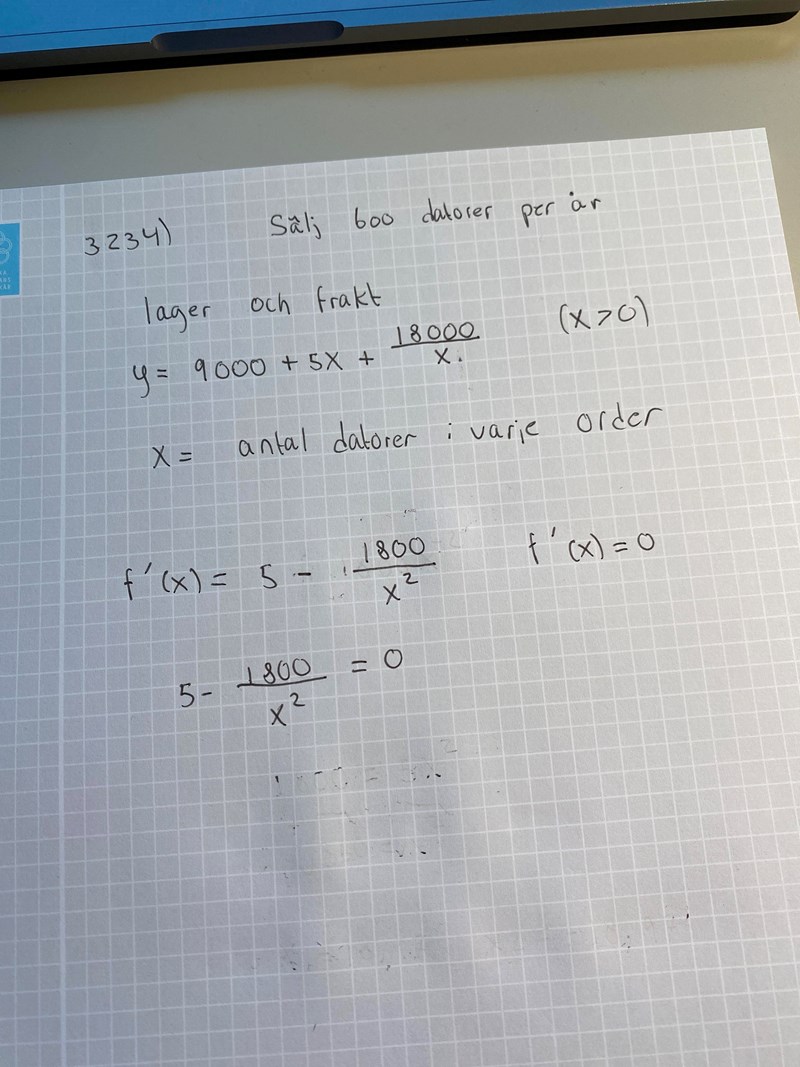 3234) Sälj 600 datorer per år
lager och frakt
y = 9000 + 5x + 18000/x. (x>0)
x = antal datorer i varje order
f'(x) = 5 - 1800/x² f'(x) = 0
5 - 1800/x² = 0